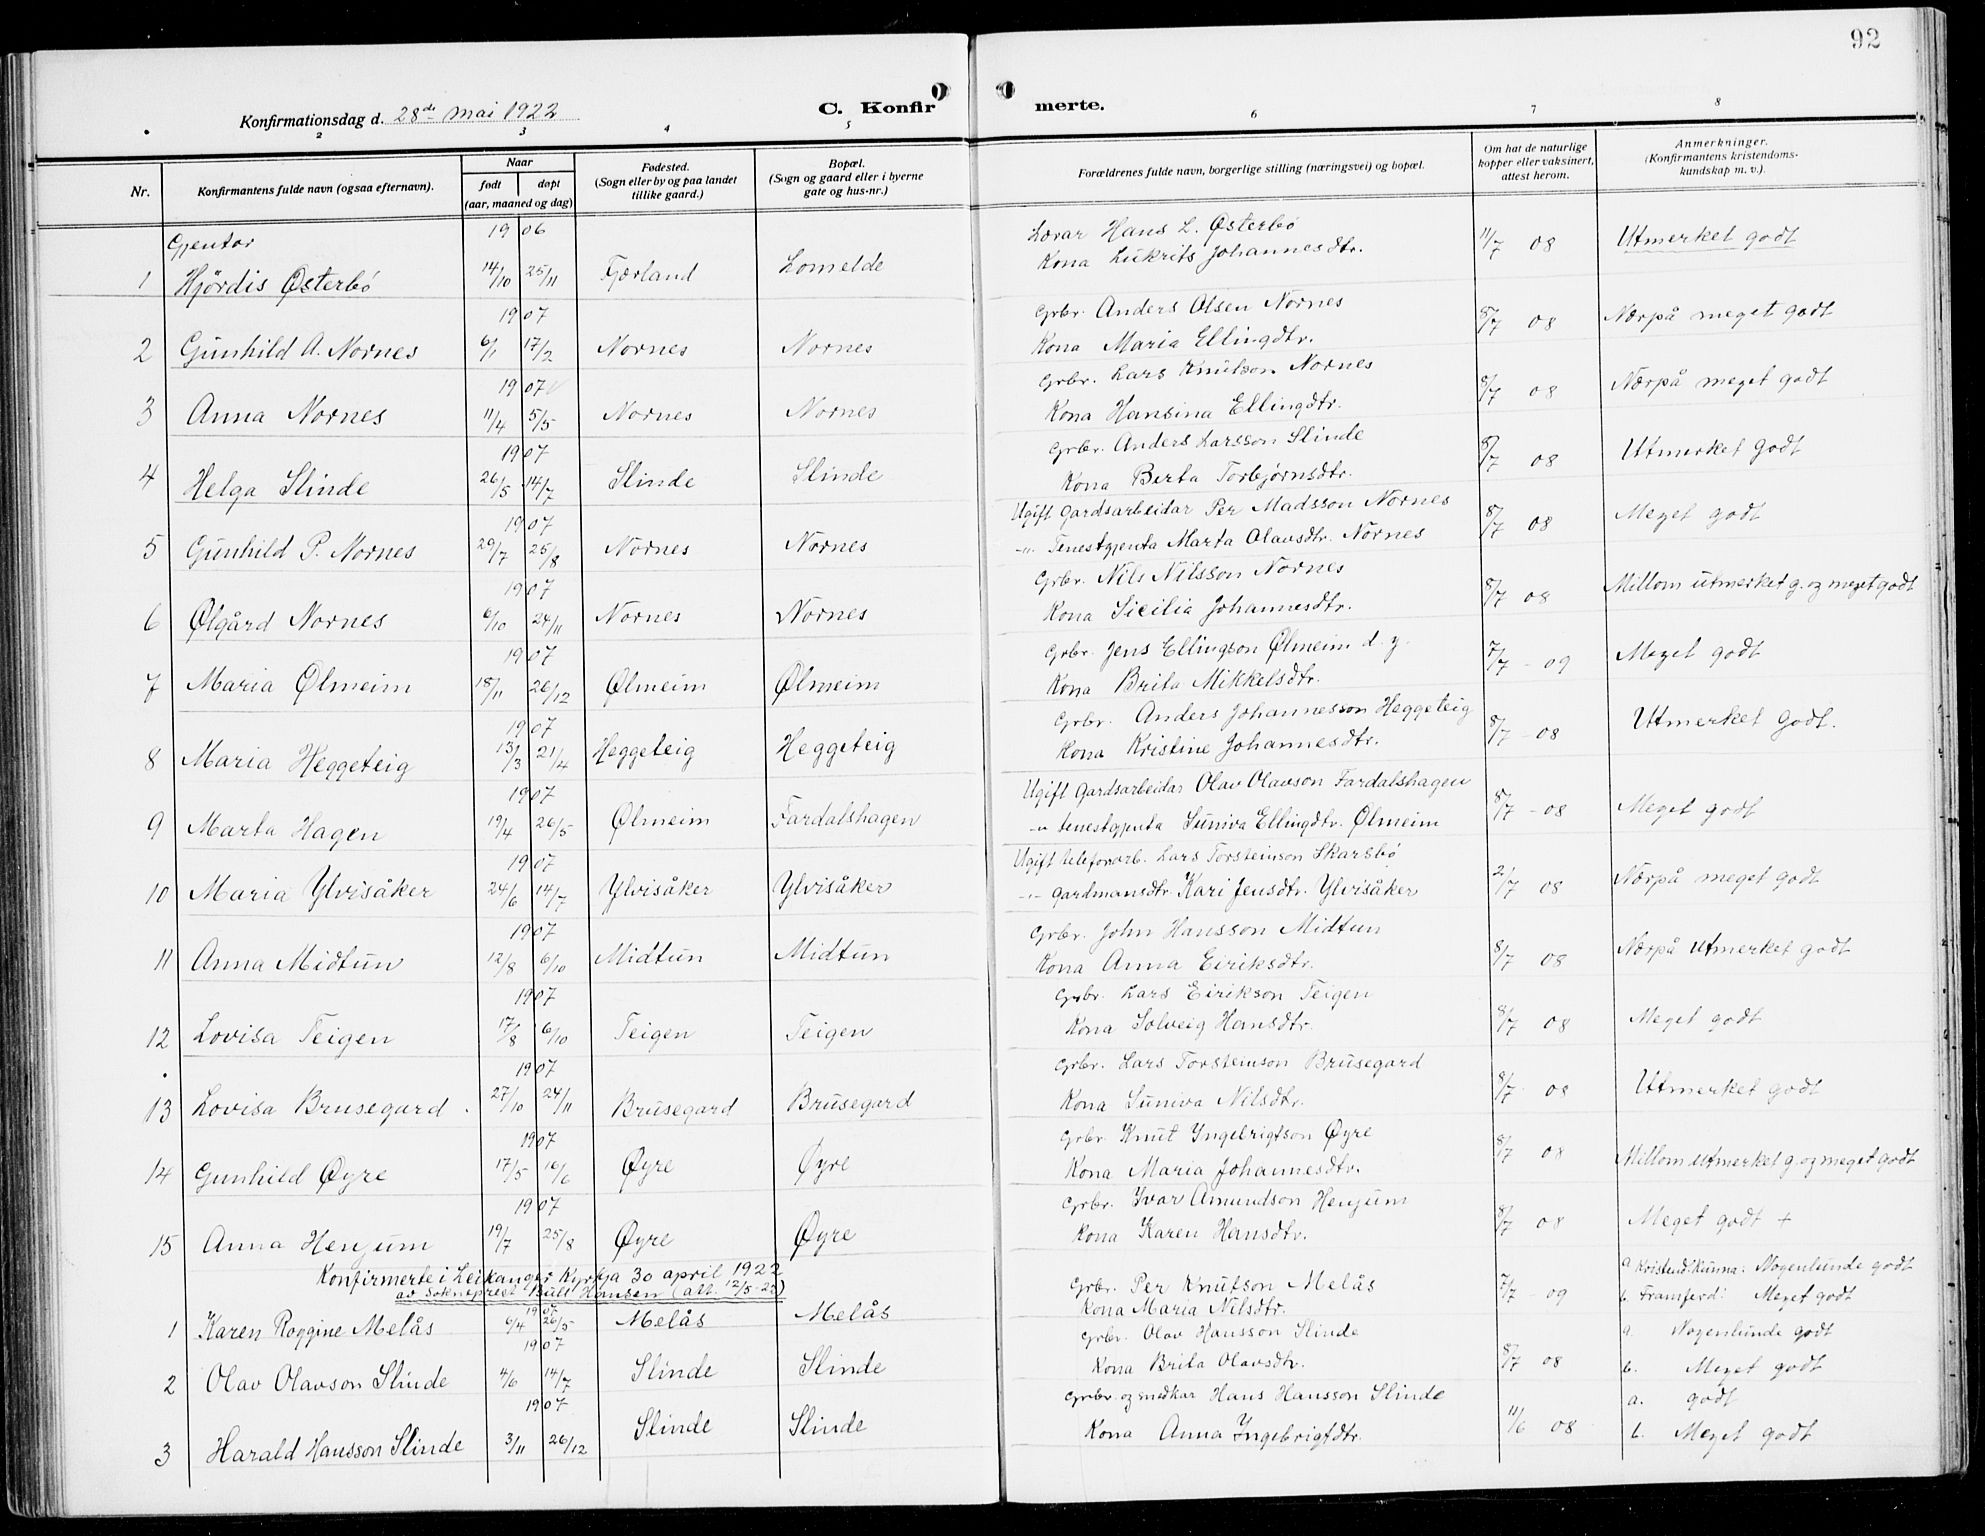 92
Konfirmationsdag d. 28de mai 1922
C. Konfirmerte.
2 3 4 5 6 7 8
Nr. Konfirmantens fulde navn (ogsaa efternavn). Naar født døpt (aar, maaned og dag) Fødested. (Sogn eller by og paa landet tillike gaard.) Bopæl. (Sogn og gaard eller i byerne gate og hus-nr.) Forældrenes fulde navn, borgerlige stilling (næringsvei) og bopæl. Om hat de naturlige kopper eller vaksinert, attest herom. Anmerkninger. (Konfirmantens kristendoms-kundskap m. v.).
Gjentor 1906 Lærar Hans L. Østerbø
1 Hjördis Østerbö 14/10 25/11 Fjærland Lomelde Kona Lukrits Johannesdtr. 11/7 08 Utmerket godt
1907 Grbr. Anders Olsen Nornes
2 Gunhild A. Nornes 6/1 17/2 Nornes Nornes Kona Maria Ellingdtr. 8/7 08 Nærpå meget godt
1907 Grbr. Lars Knutson Nornes
3 Anna Nornes 11/4 5/5 Nornes Nornes Kona Hansina Ellingdtr. 8/7 08 Nærpå meget godt
1907 Grbr. Anders Larsson Slinde
4 Helga Slinde 26/5 14/7 Slinde Slinde Kona Berta Torbjørnsdtr. 8/7 08 Utmerket godt
1907 Ugift Gardsarbeidar Per Madsson Nornes
5 Gunhild P. Nornes 29/7 25/8 Nornes Nornes -"- Tenestgjenta Marta Olavsdtr. Nornes 8/7 08 Meget godt
1907 Grbr. Nils Nilsson Nornes
6 Ølgård Nornes 6/10 24/11 Nornes Nornes Kona Sicilia Johannesdtr. 8/7 08 Millom utmerket g. og meget godt
1907 Grbr. Jens Ellingson Ølmeim d. y.
7 Maria Ølmeim 18/11 26/12 Ølmeim Ølmeim Kona Brita Mikkelsdtr. 7/7 - 09 Meget godt
1907 Grbr. Anders Johannesson Heggeteig
8 Maria Heggeteig 13/3 21/4 Heggeteig Heggeteig Kona Kristine Johannesdtr. 8/7 - 08 Utmerket godt.
1907 Ugift Gardsarbeidar Olav Olavson Fardalshagen
9 Marta Hagen 19/4 26/5 Ølmeim Fardalshagen -"- tenestgjenta Suniva Ellingdtr. Ølmeim 8/7 - 08 Meget godt
1907 Ugift telefonarb. Lars Torsteinson Skarsbö
10 Maria Ylvisåker 24/6 14/7 Ylvisåker Ylvisåker -"- Gardmansdtr. Kari Jensdtr. Ylvisåker 2/7 08 Nærpå meget godt
1907 Grbr. John Hansson Midtun
11 Anna Midtun 12/8 6/10 Midtun Midtun Kona Anna Eiriksdtr. 8/7 08 Nærpå utmerket godt
1907 Grbr. Lars Eirikson Teigen
12 Lovisa Teigen 17/8 6/10 Teigen Teigen Kona Solveig Hansdtr. 8/7 08 Meget godt
1907 Grbr. Lars Torsteinson Brusegard
13 Lovisa Brusegard 27/10 24/11 Brusegard Brusegard Kona Suniva Nilsdtr. 8/7 08 Utmerket godt
1907 Grbr. Knut Ingebrigtson Øyre
14 Gunhild Øyre 17/5 16/6 Øyre Øyre Kona Maria Johannesdtr. 8/7 08 Millom utmerket g. og meget godt
1907 Grbr. Ivar Amundson Henjum
15 Anna Henjum 19/7 25/8 Øyre Øyre Kona Karen Hansdtr. 8/7 08 Meget godt +
Konfirmerte i Leikanger Kyrkja 30 april 1922
av Sokneprest Bull Hansen (att. 12/5-22)
1907 Grbr. Per Knutson Melås a Kristend.kunna: Nogenlunde godt
1 Karen Roggine Melås 6/4 26/5 Melås Melås Kona Maria Nilsdtr. 7/7 - 09 b. Framferd: Meget godt
1907 Grbr. Olav Hansson Slinde a. Nogenlunde godt
2 Olav Olavson Slinde 4/6 14/7 Slinde Slinde Kona Brita Olavsdtr. 8/7 08 b. Meget godt
1907 Grbr. og smedkar Hans Hansson Slinde a. godt
3 Harald Hansson Slinde 3/11 26/12 Slinde Slinde Kona Anna Ingebrigtdtr. 11/6 08 b. Meget godt